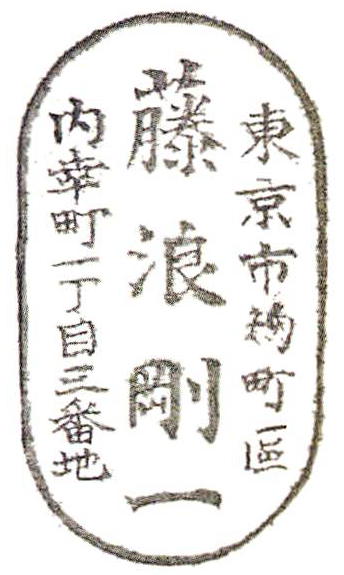 東京市麹町區
藤浪剛一
内幸町一丁目三番地